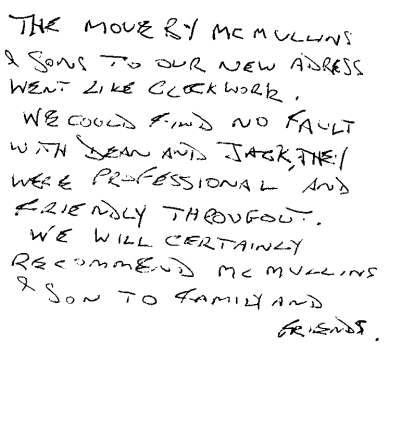 THE MOVE BY MCMULLINS
& SONS TO OUR NEW ADRESS
WENT LIKE CLOCKWORK.
WE COULD FIND NO FAULT
WITH DEAN AND JACK, THEY
WERE PROFESSIONAL AND
FRIENDLY THROUGOUT.
WE WILL CERTAINLY
RECOMMEND MCMULLINS
& SON TO FAMILY AND
FRIENDS.